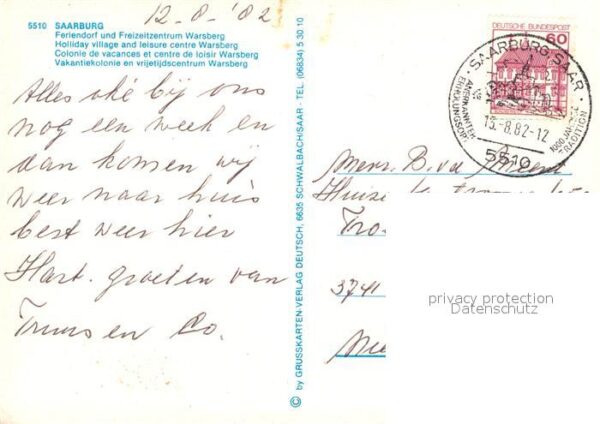 12-8-'82
5510 SAARBURG
Feriendorf und Freizeitzentrum Warsberg
Holliday village and leisure centre Warsberg
Colonie de vacances et centre de loisir Warsberg
Vakantiekolonie en vrijetijdscentrum Warsberg
Alles oké bij ons
nog een week en
dan komen wij
weer naar huis
best weer hier
Hart. groeten van
Truus en Co.
© by GRUSSKARTEN-VERLAG DEUTSCH, 6635 SCHWALBACH/SAAR - TEL. (06834) 5 30 10
DEUTSCHE BUNDESPOST
60
SAARBURG SAAR
ANERKANNTER
ERHOLUNGSORT
1000 JAHRIGE
TRADITION
13.-8.82-12
5510
Mevr. B. vd
3741
privacy protection
Datenschutz